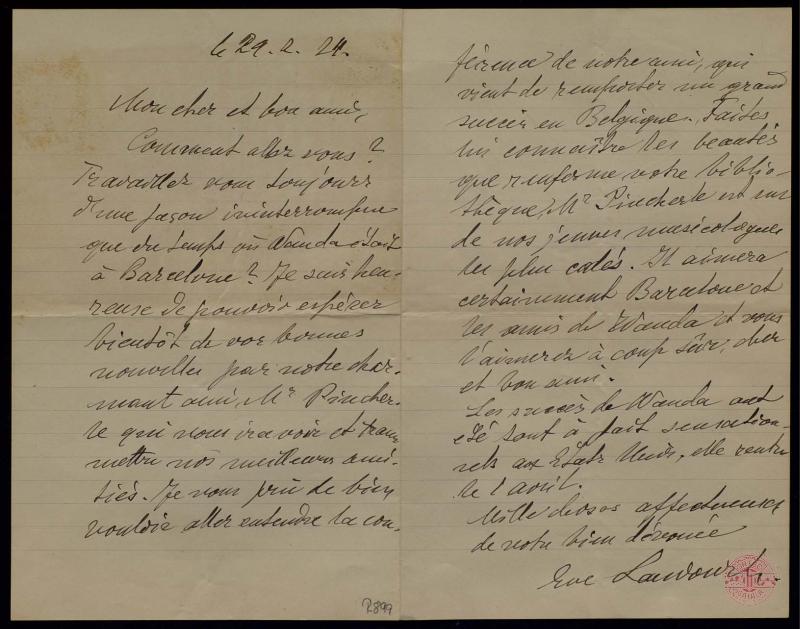 le 29. 2. 24.
Mon cher et bon ami,
Comment allez vous?
Travaillez vous toujours
d'une façon ininterrompue
que du temps où Wanda était
à Barcelone? Je suis heu-
reuse de pouvoir espérer
bientôt de vos bonnes
nouvelles par notre char-
mant ami, Mr Pincher-
le qui vous ira voir et trans-
mettra nos meilleurs ami-
tiés. Je vous prie de bien
vouloir aller entendre la con-
férence de notre ami, qui
vient de remporter un grand
succès en Belgique. Faites
lui connaître les beautés
que renferme votre biblio-
thèque, Mr Pincherle est un
de nos jeunes musicologues
les plus calés. Il aimera
certainement Barcelone et
les amis de Wanda et vous
l'aimerez à coup sûr, cher
et bon ami.
Les succès de Wanda ont
été tout à fait sensation-
nels aux États Unis, elle rentre
le 1 avril.
Mille choses affectueuses
de votre bien dévouée
Eve Landowska.
R.899